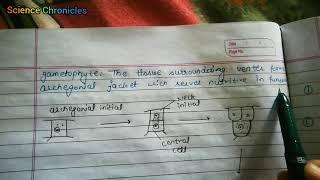 Science Chronicles
Date
Page No.
gametophyte. The tissue surrounding venter form
archegonial jacket wich serves nutritive in func
archegonial initial
Neck
initial
central
cell